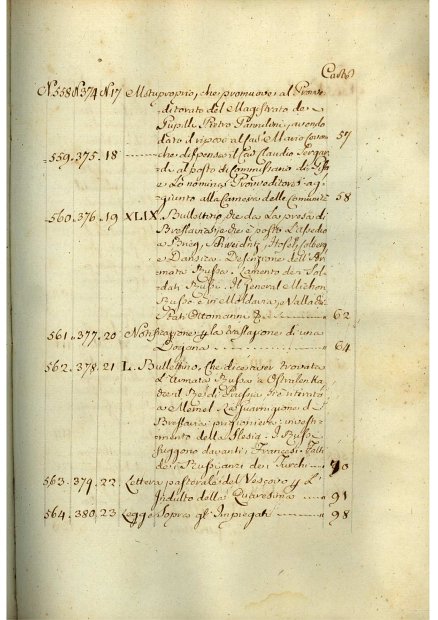 Carte
N.558 N.374 N.17 Motuproprio, che promuove al Provve-
ditorato del Magistrato de
Pupilli Pietro Pannilini, avendo
dato il riposo al Cav.e Mario 57
559. 375. 18 che dispensa il Cav. Claudio Sergar-
di al posto di Commissario di
e Lo nomina Provveditore ag-
giunto alla Camera delle Comunità 58
560. 376. 19 XLIX. Bullettino, che dà La presa di
Breslavia; che è posto L'assedio
a Brieg, Schweidnitz, Kosel, Colberg
e Danzica. Descrizione dell'Ar-
mata Russa. Lamento de i Sol-
dati Russi. Il General Michelson
Russo è in Moldavia, e Valladia
Stati Ottomanni 62
561. 377. 20 Notificazione p la traslazione di una
Dogana 64
562. 378. 21 L. Bullettino, che dice esser trovata
L'Armata Russa a Ostrolenka,
che il Re di Prussia era ritirato
a Memel. La Guarnigione di
Breslavia prigioniera; investi-
mento della Slesia. I Russi
fuggono davanti i Francesi. Fatti
de i Russi anzi dei Turchi 70
563. 379. 22 Lettera pastorale del Vescovo p L'
Indulto della Quaresima 91
564. 380. 23 Legge Sopra gl'Impiegati 98